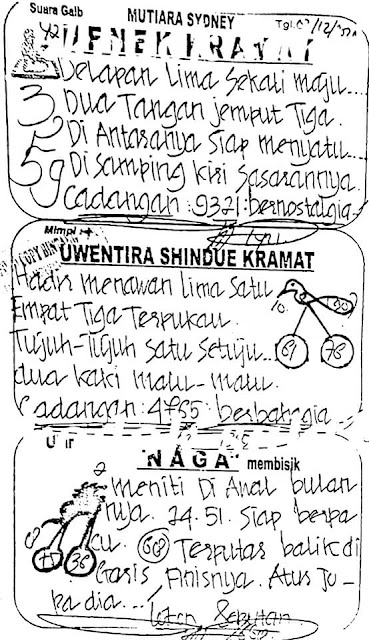 Suara Gaib MUTIARA SYDNEY
NENEK KRAMAT
Delapan Lima Sekali maju....
3 Dua Tangan jemput Tiga.
5 Di Antaranya siap menyatu....
59 Di Samping kiri Sasarannya.
Cadangan : 9321 : bernostalgia
Mimpi
UWENTIRA SHINDUE KRAMAT
Hadir menawan Lima Satu
Empat Tiga Terpukau.
Tujuh-Tujuh Satu Setuju...
dua kaki malu-malu.
Cadangan : 4755 : berbahagia
69 78
"NAGA" membisik
meniti Di Awal bulan
nya. 24.51. Siap berpa
cu. 68 Terputas balik di
Garis Finisnya. Atus Ju-
ba dia...
36